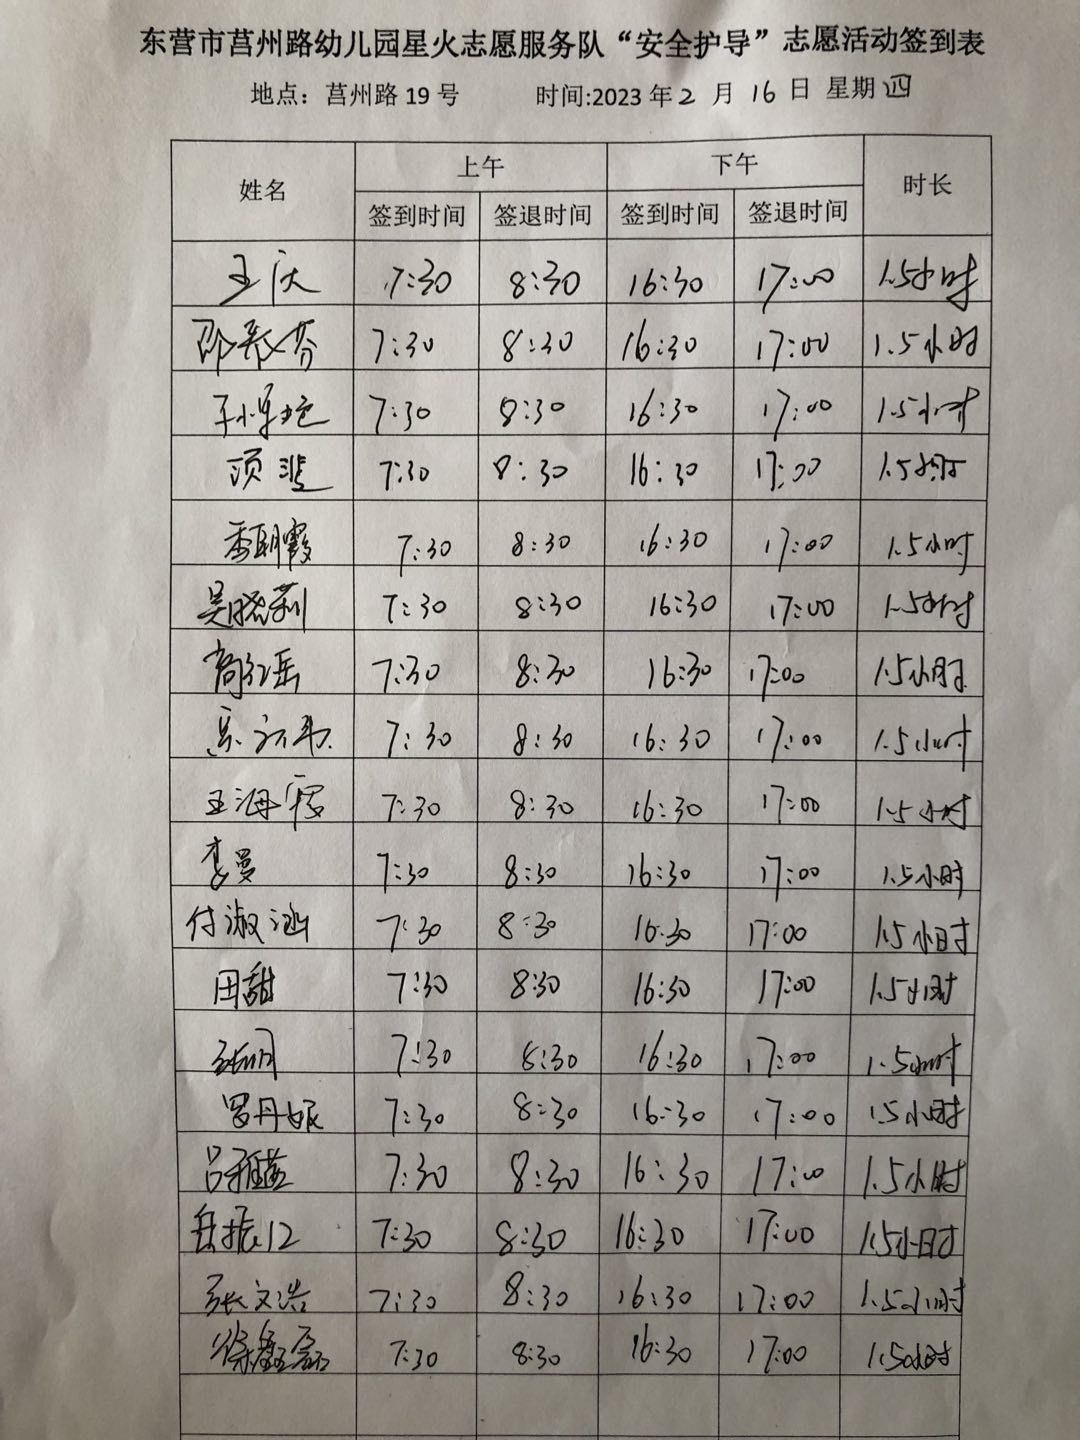 东营市莒州路幼儿园星火志愿服务队“安全护导”志愿活动签到表
地点：莒州路 19 号 时间:2023 年 2 月 16 日 星期 四
姓名 上午 下午 时长
签到时间 签退时间 签到时间 签退时间
王庆 7:30 8:30 16:30 17:00 1.5小时
邵 芬 7:30 8:30 16:30 17:00 1.5小时
7:30 8:30 16:30 17:00 1.5小时
须 7:30 8:30 16:30 17:00 1.5小时
霞 7:30 8:30 16:30 17:00 1.5小时
吴晓莉 7:30 8:30 16:30 17:00 1.5小时
7:30 8:30 16:30 17:00 1.5小时
7:30 8:30 16:30 17:00 1.5小时
王海霞 7:30 8:30 16:30 17:00 1.5小时
李曼 7:30 8:30 16:30 17:00 1.5小时
付淑涵 7:30 8:30 16:30 17:00 1.5小时
田甜 7:30 8:30 16:30 17:00 1.5小时
7:30 8:30 16:30 17:00 1.5小时
罗丹妮 7:30 8:30 16:30 17:00 1.5小时
吕雅 7:30 8:30 16:30 17:00 1.5小时
岳振江 7:30 8:30 16:30 17:00 1.5小时
张文浩 7:30 8:30 16:30 17:00 1.5小时
徐鑫磊 7:30 8:30 16:30 17:00 1.5小时